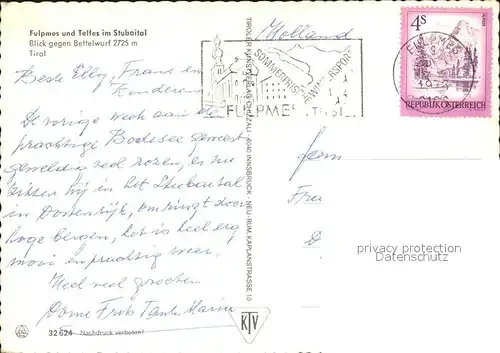 Fulpmes und Telfes im Stubaital
Blick gegen Bettelwurf 2725 m
Tirol
Holland
SOMMERFRISCHE
WINTERSPORT
FULPMES Tirol
4S
REPUBLIK ÖSTERREICH
FULPMES
Beste Elly, Frans en
Kinderen
De vorige week aan de
prachtige Bodensee geweest
geweldig veel rozen, en nu
zitten wij in het Stubaital
in Oostenrijk, omringt door
hoge bergen, het is heel erg
mooi en prachtig weer.
Heel veel groeten
Oome Frits Tante Maria
TIROLER KUNSTVERLAG CHIZZALI · 6040 INNSBRUCK · NEU-RUM, KAPLANSTRASSE 10
Fam
Fra
D
privacy protection
Datenschutz
KTV
32 624 Nachdruck verboten!